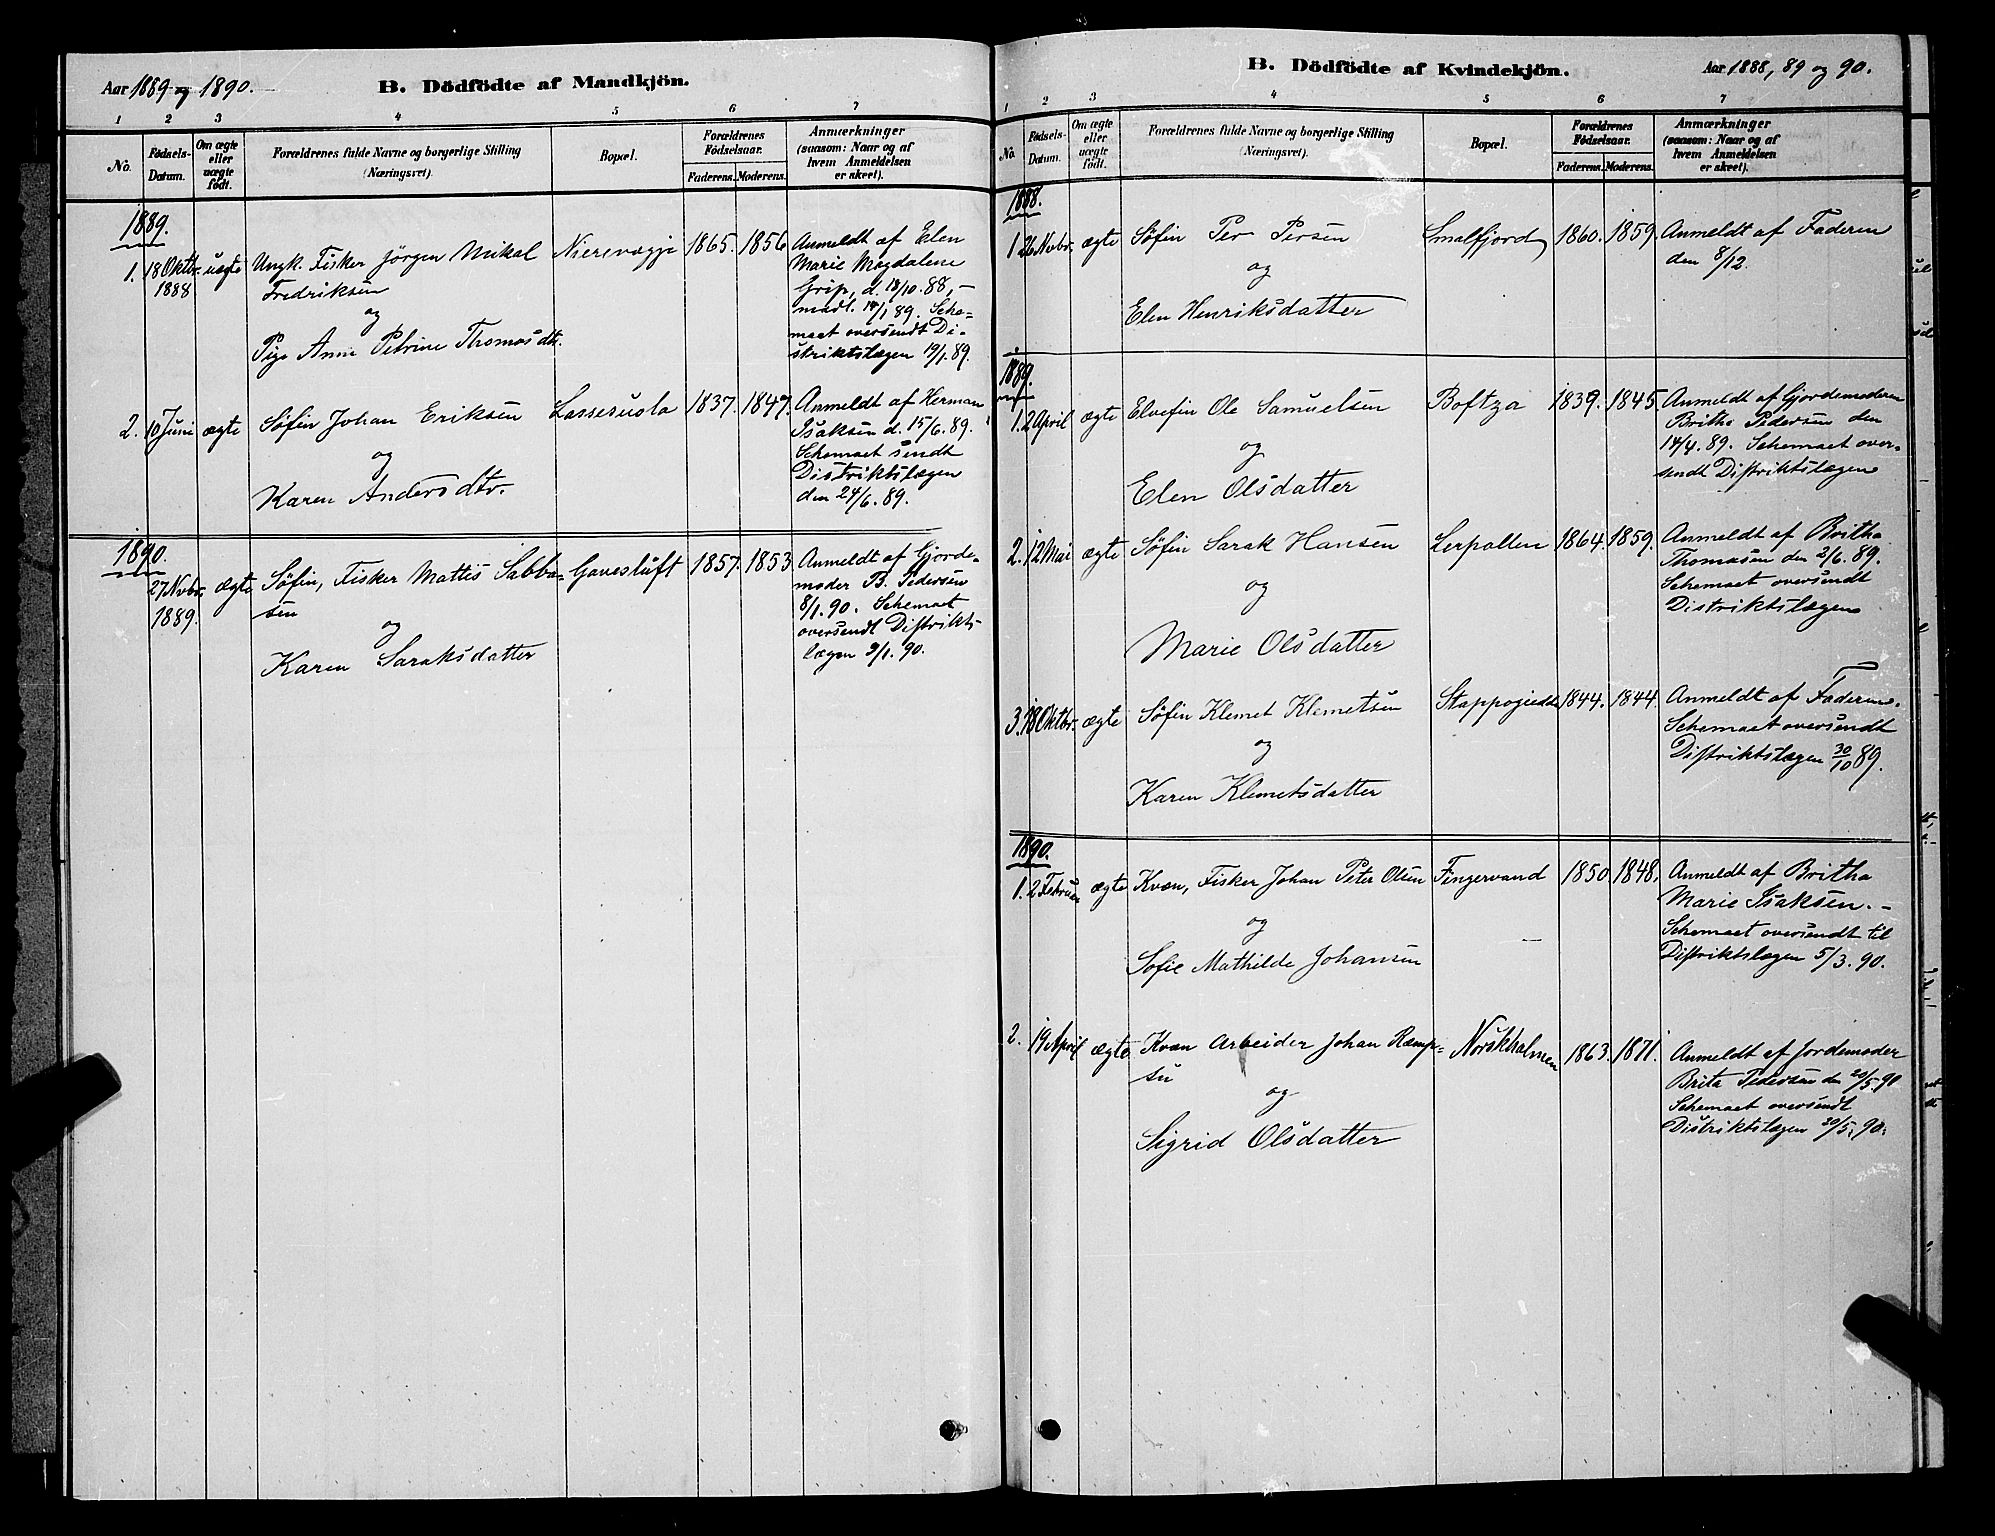 Aar 1889 og 1890.
B. Dödfödte af Mandkjön.
1 2 3 4 5 6 7
No.
Födsels-Datum.
Om ægte eller uægte födt.
Forældrenes fulde Navne og borgerlige Stilling (Næringsvei).
Bopæl.
Forældrenes Födselsaar.
Faderens. Moderens.
Anmærkninger (saasom: Naar og af hvem Anmeldelsen er skeet).
1889.
1. 18 Oktbr. uægte Ungk. Fisker Jörgen Mikal Nierevægje 1865. 1856 Anmeldt af Elen
1888 Fredriksen Marie Magdalene
og Grip, d. 18/10. 88, –
Pige Anne Petrine Thomasdtr. mdl. 14/1 89. Sche-
maet oversendt Di-
striktslægen 19/1. 89.
2. 10 Juni ægte Söfin Johan Eriksen Lassesuola 1837. 1847. Anmeldt af Herman
og Isaksen d. 15/6. 89.
Karen Andersdtr. Schemaet sendt
Distriktslægen
den 24/6. 89.
1890.
27 Novbr. ægte Söfin, Fisker Mattis Sabba- Gavesluft 1857. 1853 Anmeldt af Gjorde-
1889. sen moder B. Pedersen
og 8/1. 90. Schemaet
Karen Saraksdatter oversendt Distrikts-
lægen 9/1. 90.
B. Dödfödte af Kvindekjön.
Aar 1888, 89 og 90.
1 2 3 4 5 6 7
No.
Födsels-Datum.
Om ægte eller uægte födt.
Forældrenes fulde Navne og borgerlige Stilling (Næringsvei).
Bopæl.
Forældrenes Födselsaar.
Faderens. Moderens.
Anmærkninger (saasom: Naar og af hvem Anmeldelsen er skeet).
1888.
1 26 Novbr. ægte Söfin Per Persen Smalfjord 1860. 1859. Anmeldt af Faderen
og den 8/12.
Elen Henriksdatter
1889.
1. 2 April ægte Elvefin Ole Samuelsen Boftza 1839. 1845. Anmeldt af Gjordemoderen
og Britha Pedersen den
Elen Olsdatter 14/4. 89. Schemaet over-
sendt Distriktslægen
2. 12 Mai ægte Söfin Sarak Hansen Lerpollen 1864. 1859. Anmeldt af Britha
og Thomasen den 2/6. 89.
Marie Olsdatter Schemaet oversendt
Distriktslægen
3. 18 Oktbr. ægte Söfin Klemet Klemetsen Stappogiedde 1844. 1844. Anmeldt af Faderen.
og Schemaet oversendt
Karen Klemetsdatter Distriktslægen 30/10 89.
1890.
1. 2 Februar ægte Kvæn, Fisker Johan Peter Olsen Fingervand 1850. 1848. Anmeldt af Britha
og Marie Isaksen. –
Sofie Mathilde Johansen Schemaet oversendt til
Distriktslægen 5/3. 90.
2. 19 April ægte Kvæn Arbeider Johan Ramp- Norskholmen 1863. 1871. Anmeldt af Jordemoder
sen Brita Pedersen den 20/5. 90
og Schemaet oversendt
Sigrid Olsdatter Distriktslægen 20/5. 90.